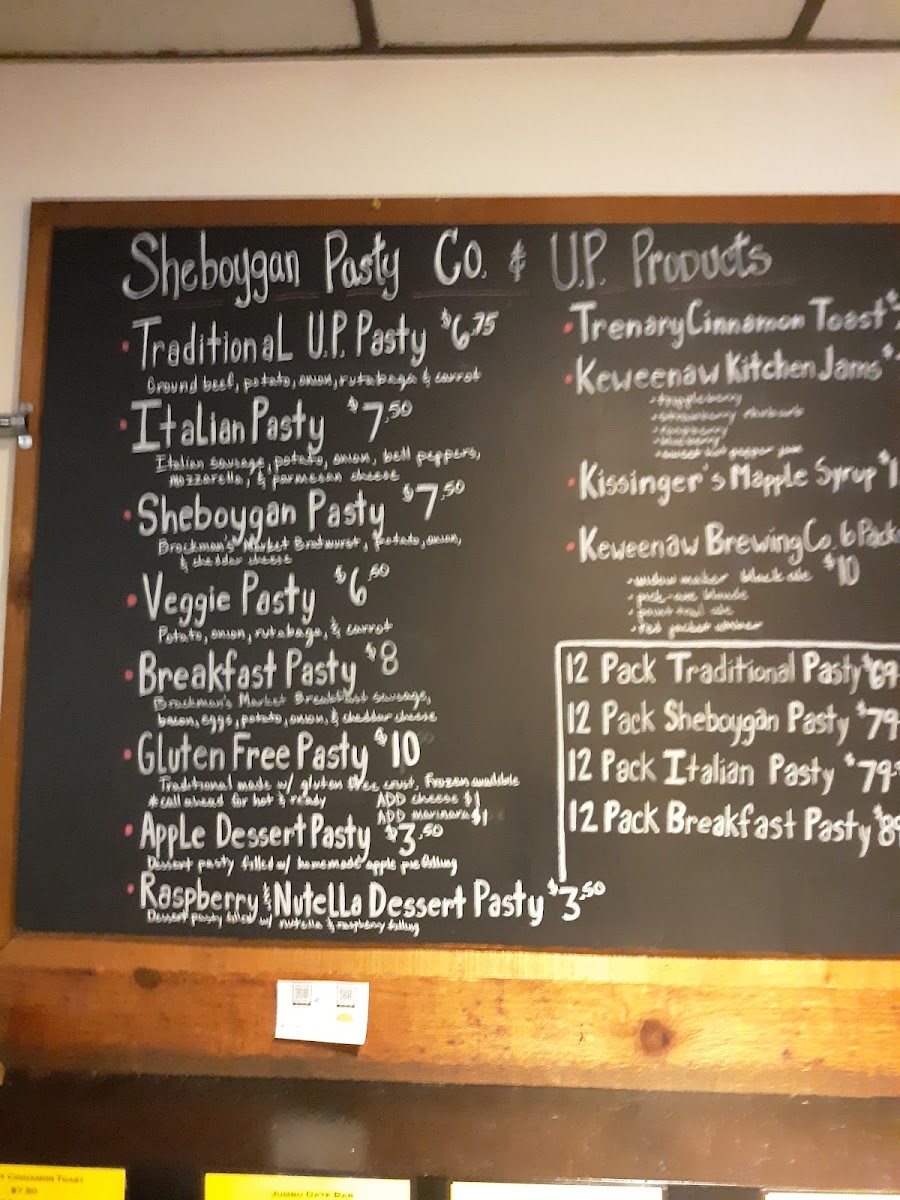 Sheboygan Pasty Co. & U.P. Products
• Traditional U.P. Pasty $6.75
Ground beef, potato, onion, rutabaga & carrot
• Italian Pasty $7.50
Italian sausage, potato, onion, bell peppers,
mozzarella, & parmesan cheese
• Sheboygan Pasty $7.50
Brockman's Market Bratwurst, potato, onion,
& cheddar cheese
• Veggie Pasty $6.50
Potato, onion, rutabaga, & carrot
• Breakfast Pasty $8
Brockman's Market Breakfast sausage,
bacon, eggs, potato, onion, & cheddar cheese
• Gluten Free Pasty $10
Traditional made w/ gluten free crust, Frozen available
* call ahead for hot & ready
ADD cheese $1
ADD marinara $1
• Apple Dessert Pasty $3.50
Dessert pasty filled w/ homemade apple pie filling
• Raspberry & Nutella Dessert Pasty $3.50
Dessert pasty filled w/ nutella & raspberry filling
• Trenary Cinnamon Toast $
• Keweenaw Kitchen Jams $
- thimbleberry
- strawberry rhubarb
- raspberry
- blueberry
- sweet hot pepper jam
• Kissinger's Mapple Syrup $1
• Keweenaw Brewing Co. 6 Pack
$10
- widow maker black ale
- pick-axe blonde
- point trail ale
- red jacket amber
12 Pack Traditional Pasty $69
12 Pack Sheboygan Pasty $79
12 Pack Italian Pasty $79
12 Pack Breakfast Pasty $89
Cinnamon Toast
$7.50
Jumbo Date Bar